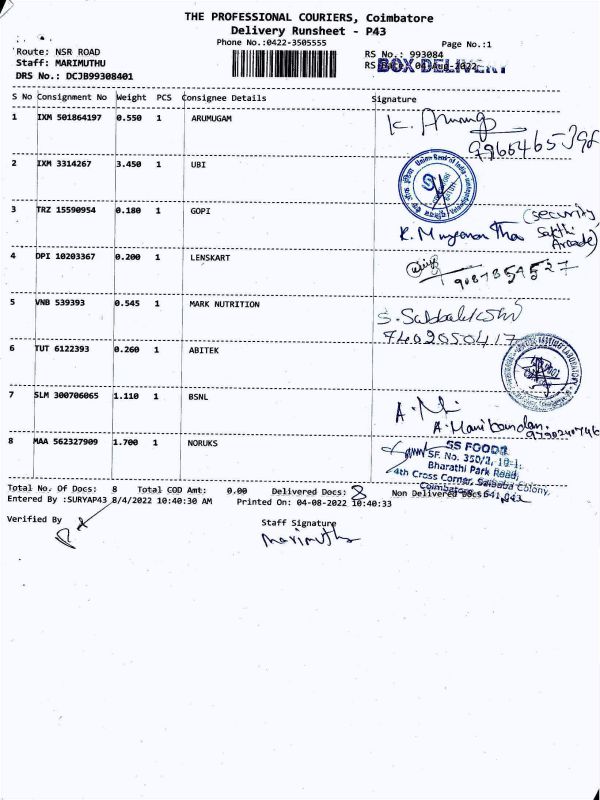 THE PROFESSIONAL COURIERS, Coimbatore
Delivery Runsheet - P43
Phone No.:0422-3505555
Page No.:1
Route: NSR ROAD
RS No.: 993084
Staff: MARIMUTHU
RS Date: 04-Aug-2022
BOX DELIVERY
DRS No.: DCJB99308401
S No Consignment No Weight PCS Consignee Details Signature
1 IXM 501864197 0.550 1 ARUMUGAM K. Arumug
2 IXM 3314267 3.450 1 UBI Union Bank of India
3 TRZ 15590954 0.180 1 GOPI (security
Sakthi
Arcade)
4 DPI 10203367 0.200 1 LENSKART
5 VNB 539393 0.545 1 MARK NUTRITION
7402050417
6 TUT 6122393 0.260 1 ABITEK TESTING LABORATORY
7 SLM 300706065 1.110 1 BSNL
A. Manikandan.
8 MAA 562327909 1.700 1 NORUKS SS FOODS
SF. No. 350/2,
Bharathi Park Road,
4th Cross Corner, Saibaba Colony,
Coimbatore - 641 043
Total No. Of Docs: 8 Total COD Amt: 0.00 Delivered Docs: 8 Non Delivered Docs
Entered By :SURYAP43 8/4/2022 10:40:30 AM Printed On: 04-08-2022 10:40:33
Verified By
Staff Signature
Marimuthu